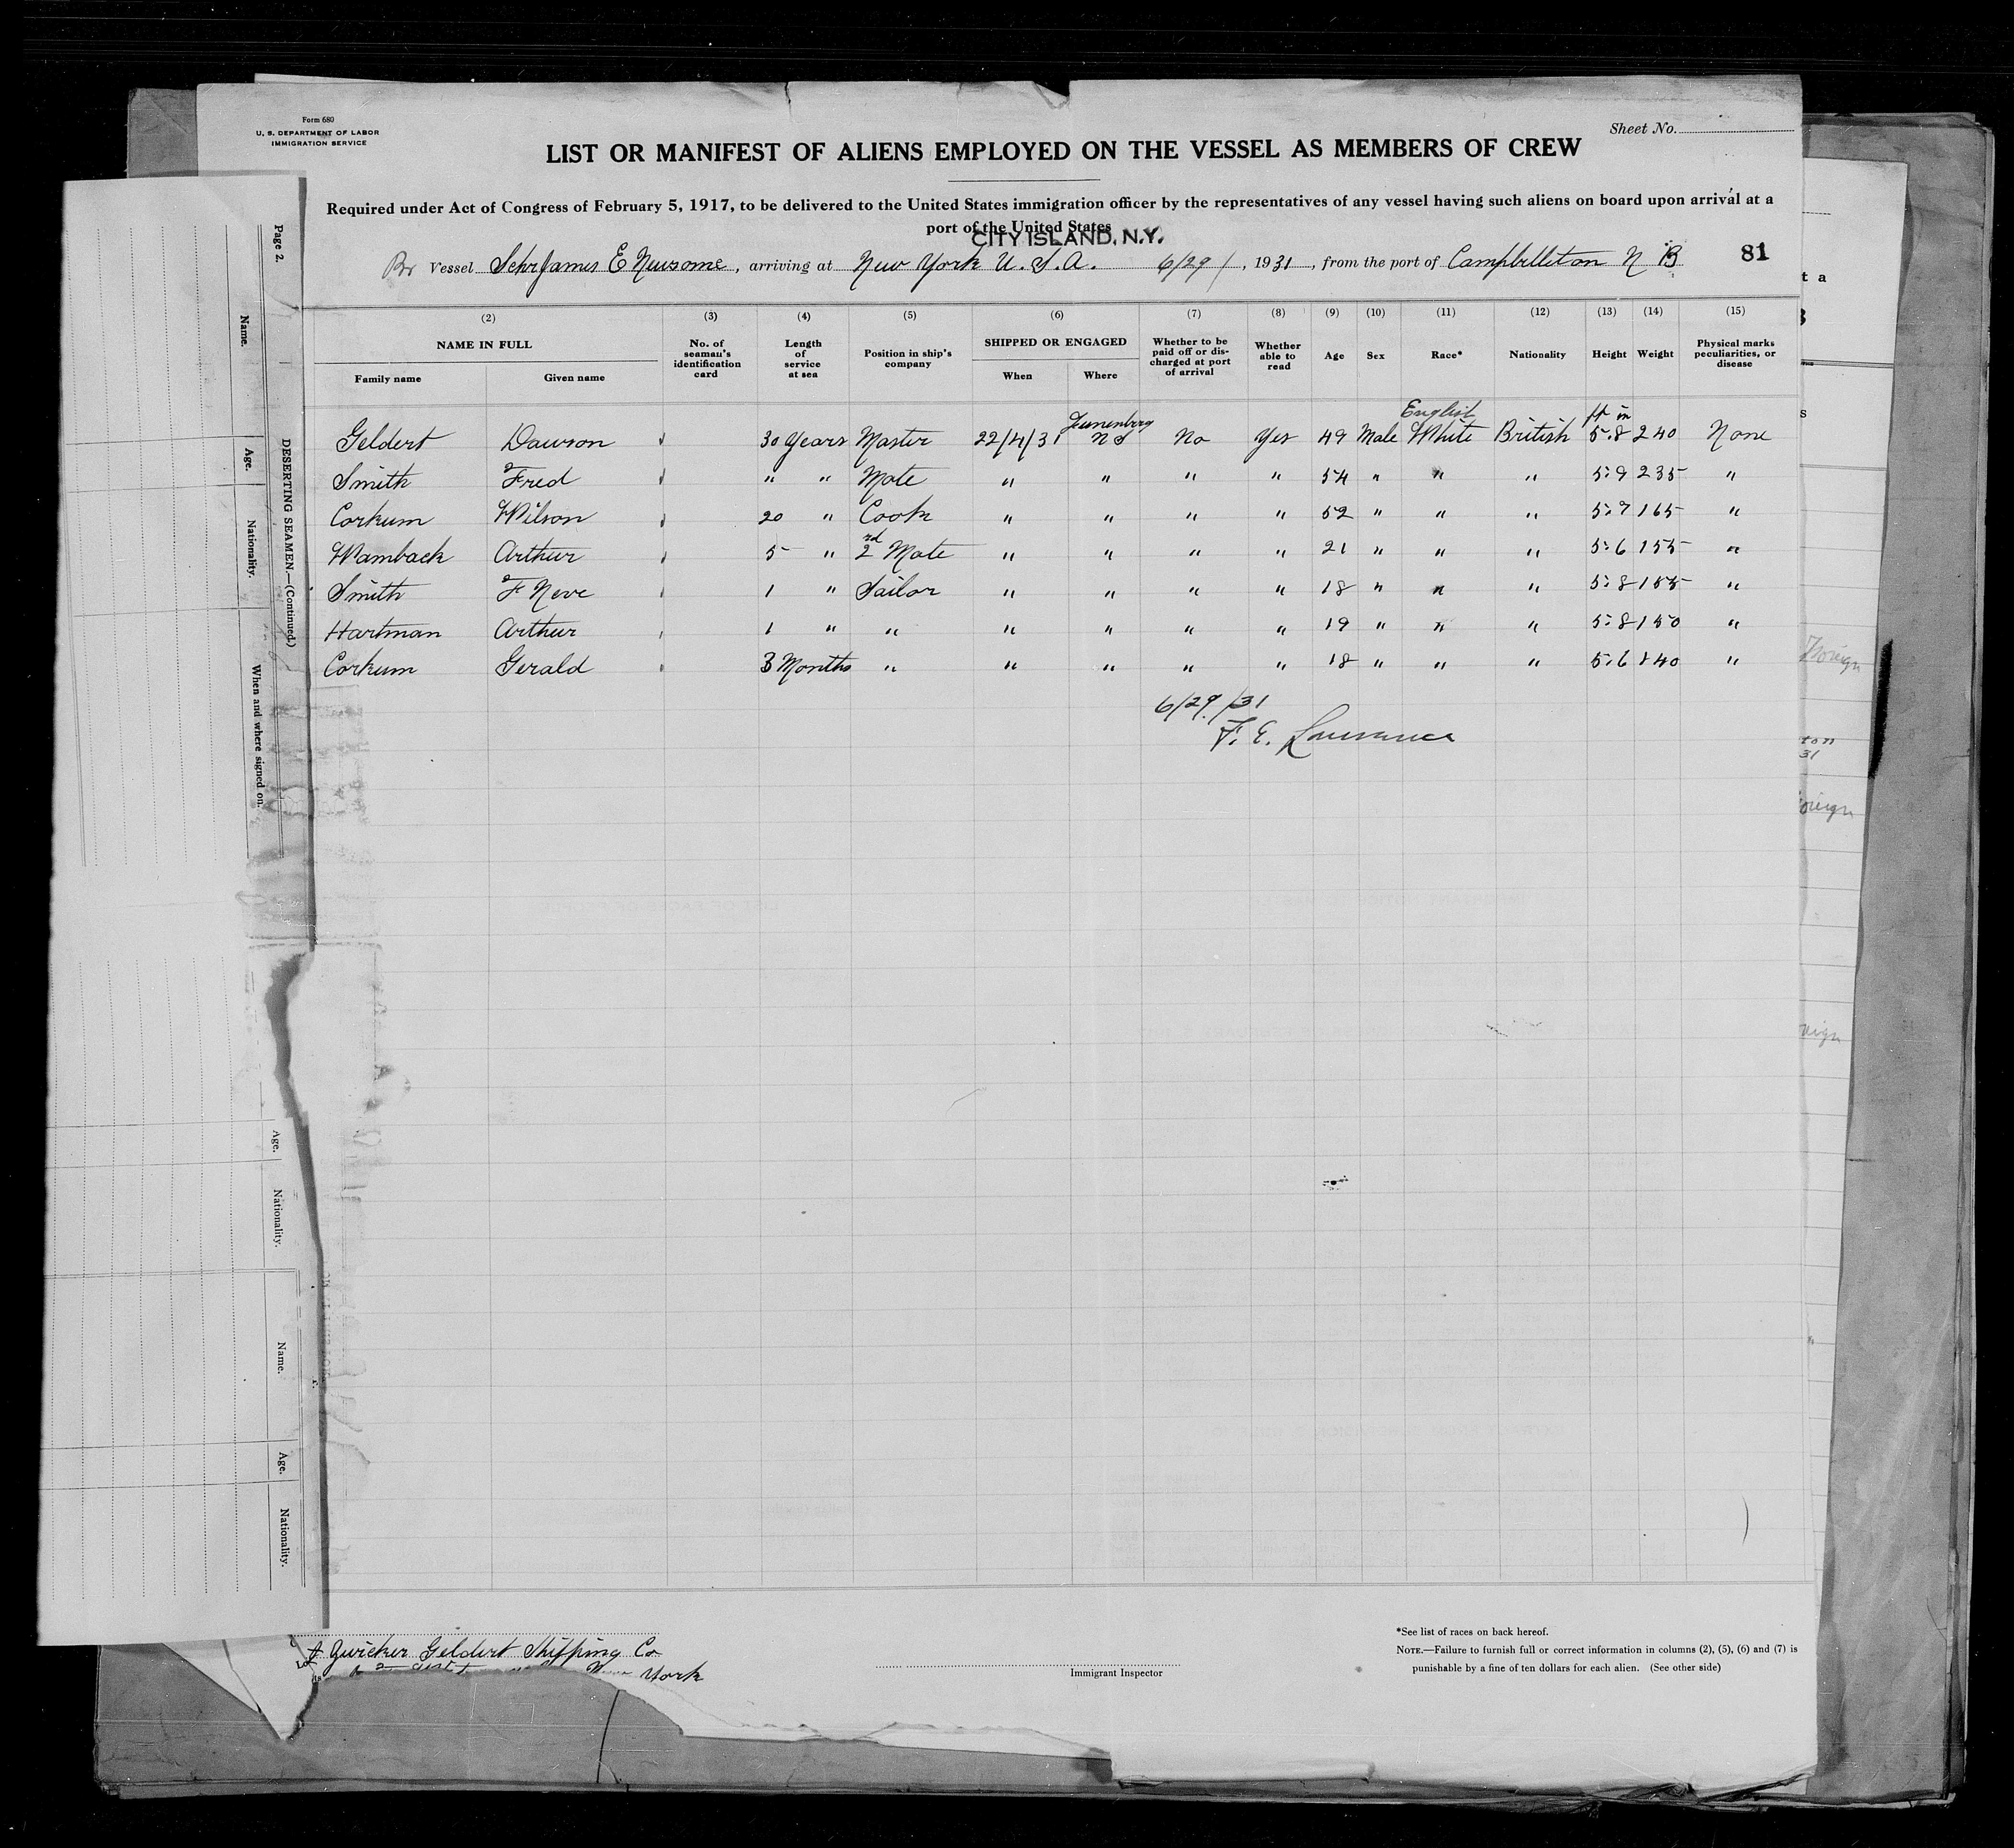 Form 680
U. S. DEPARTMENT OF LABOR
IMMIGRATION SERVICE
Sheet No.
LIST OR MANIFEST OF ALIENS EMPLOYED ON THE VESSEL AS MEMBERS OF CREW
Required under Act of Congress of February 5, 1917, to be delivered to the United States immigration officer by the representatives of any vessel having such aliens on board upon arrival at a
port of the United States
CITY ISLAND, N.Y.
Br Vessel Schr James E Newsome, arriving at New York U. S. A. 6/29/, 1931, from the port of Campbellton N B 81
(2) (3) (4) (5) (6) (7) (8) (9) (10) (11) (12) (13) (14) (15)
NAME IN FULL
Family name Given name
No. of seaman's identification card
Length of service at sea
Position in ship's company
SHIPPED OR ENGAGED
When Where
Whether to be paid off or discharged at port of arrival
Whether able to read
Age Sex Race* Nationality Height Weight
Physical marks peculiarities, or disease
Lunenburg English ft in
Geldert Dawson 30 Years Master 22/4/31 N S No Yes 49 Male White British 5.8 240 None
Smith Fred " " Mate " " " " 54 " " " 5:9 235 "
Corkum Wilson 20 " Cook " " " " 52 " " " 5:7 165 "
Wamback Arthur 5 " 2rd Mate " " " " 21 " " " 5:6 155 "
Smith F Neve 1 " Sailor " " " " 18 " " " 5:8 155 "
Hartman Arthur 1 " " " " " " 19 " " " 5:8 150 "
Corkum Gerald 3 Months " " " " " 18 " " " 5.6 140 "
6/29/31
F. E. Lawrence
Page 2.
DESERTING SEAMEN.—(Continued.)
Name.
Age.
Nationality.
When and where signed on.
Age.
Nationality.
Name.
Age.
Nationality.
Foreign
ton
31
oreign
reign
t a
Zwicker Geldert Shipping Co
York
Immigrant Inspector
*See list of races on back hereof.
NOTE.—Failure to furnish full or correct information in columns (2), (5), (6) and (7) is
punishable by a fine of ten dollars for each alien. (See other side)